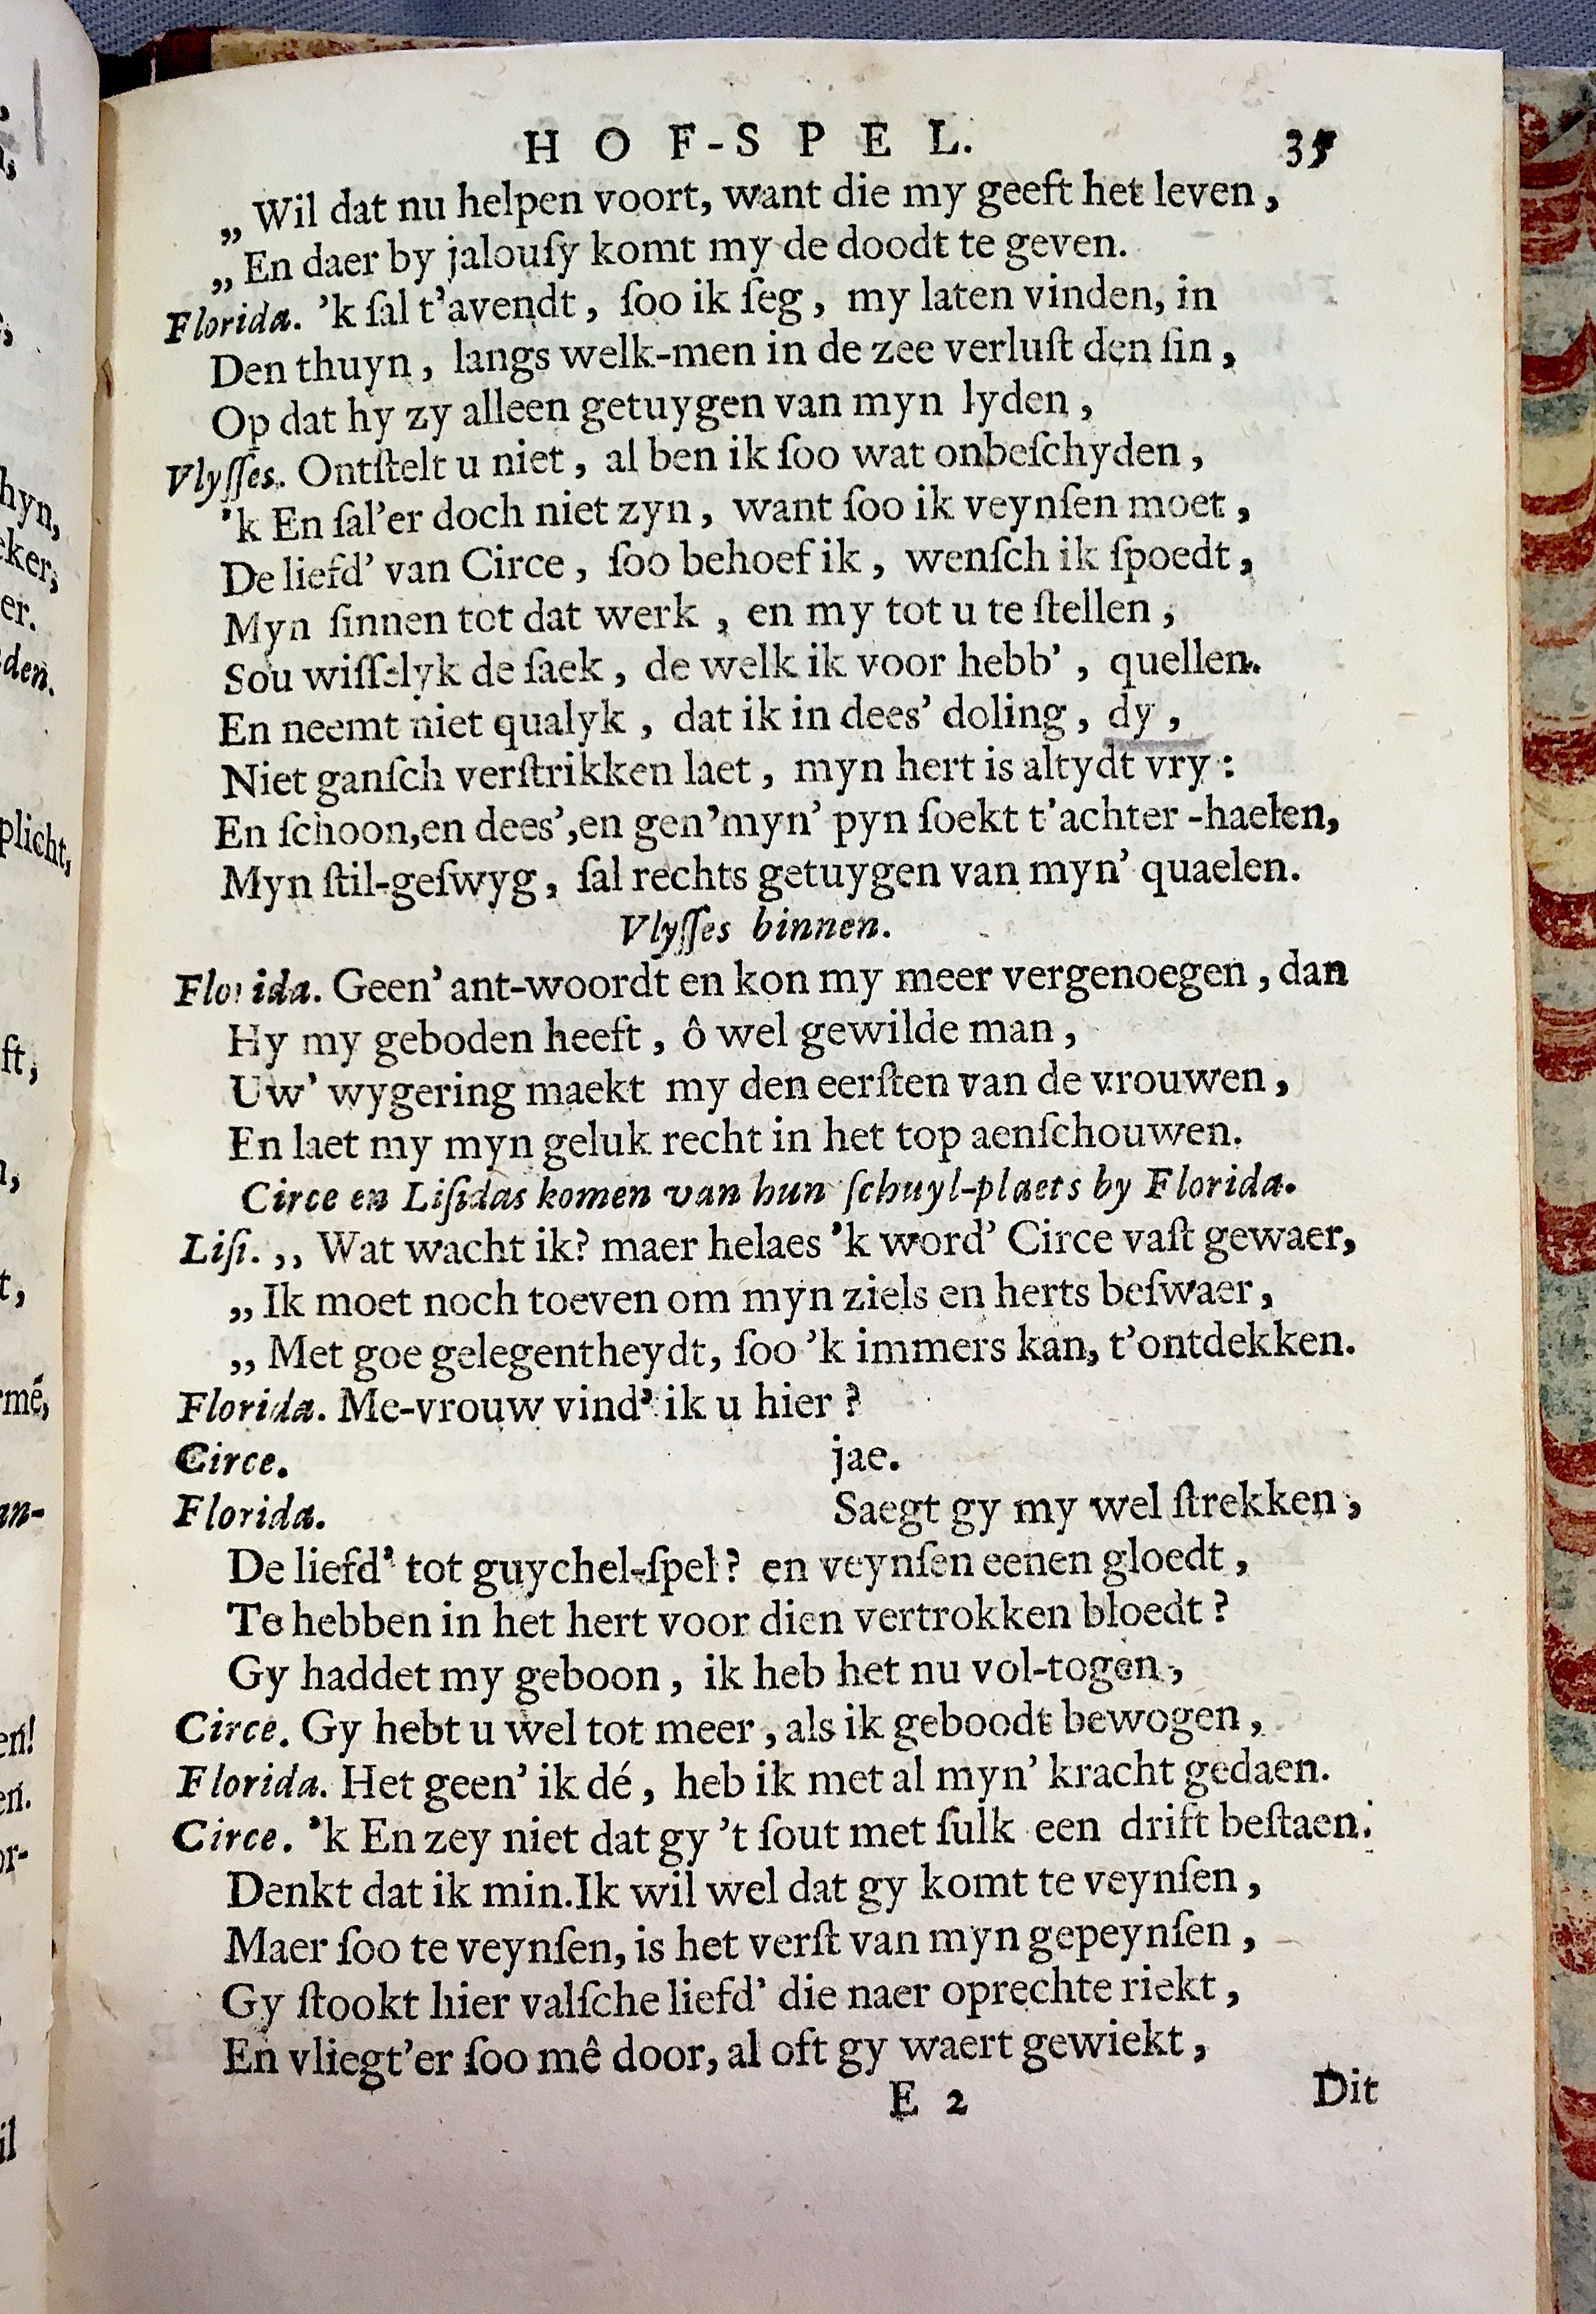 HOF-SPEL. 35
„Wil dat nu helpen voort, want die my geeft het leven,
„En daer by jalouſy komt my de doodt te geven.
Florida. 'k ſal t'avendt, ſoo ik ſeg, my laten vinden, in
Den thuyn, langs welk-men in de zee verluſt den ſin,
Op dat hy zy alleen getuygen van myn lyden,
Vlyſſes. Ontſtelt u niet, al ben ik ſoo wat onbeſchyden,
'k En ſal'er doch niet zyn, want ſoo ik veynſen moet,
De liefd' van Circe, ſoo behoef ik, wenſch ik ſpoedt,
Myn ſinnen tot dat werk, en my tot u te ſtellen,
Sou wiſſelyk de ſaek, de welk ik voor hebb', quellen.
En neemt niet qualyk, dat ik in dees' doling, dy,
Niet ganſch verſtrikken laet, myn hert is altydt vry:
En ſchoon,en dees',en gen'myn' pyn ſoekt t'achter-haelen,
Myn ſtil-geſwyg, ſal rechts getuygen van myn' quaelen.
Vlyſſes binnen.
Florida. Geen' ant-woordt en kon my meer vergenoegen, dan
Hy my geboden heeft, ô wel gewilde man,
Uw' wygering maekt my den eerſten van de vrouwen,
En laet my myn geluk recht in het top aenſchouwen.
Circe en Liſidas komen van hun ſchuyl-plaets by Florida.
Liſi. ,, Wat wacht ik? maer helaes 'k word' Circe vaſt gewaer,
„Ik moet noch toeven om myn ziels en herts beſwaer,
,, Met goe gelegentheydt, ſoo 'k immers kan, t'ontdekken.
Florida. Me-vrouw vind' ik u hier?
Circe. jae.
Florida. Saegt gy my wel ſtrekken,
De liefd' tot guychel-ſpel? en veynſen eenen gloedt,
Te hebben in het hert voor dien vertrokken bloedt?
Gy haddet my geboon, ik heb het nu vol-togen,
Circe. Gy hebt u wel tot meer, als ik geboodt bewogen,
Florida. Het geen' ik dé, heb ik met al myn' kracht gedaen.
Circe. 'k En zey niet dat gy 't ſout met ſulk een drift beſtaen.
Denkt dat ik min.Ik wil wel dat gy komt te veynſen,
Maer ſoo te veynſen, is het verſt van myn gepeynſen,
Gy ſtookt hier valſche liefd' die naer oprechte riekt,
En vliegt'er ſoo mê door, al oft gy waert gewiekt,
E 2 Dit